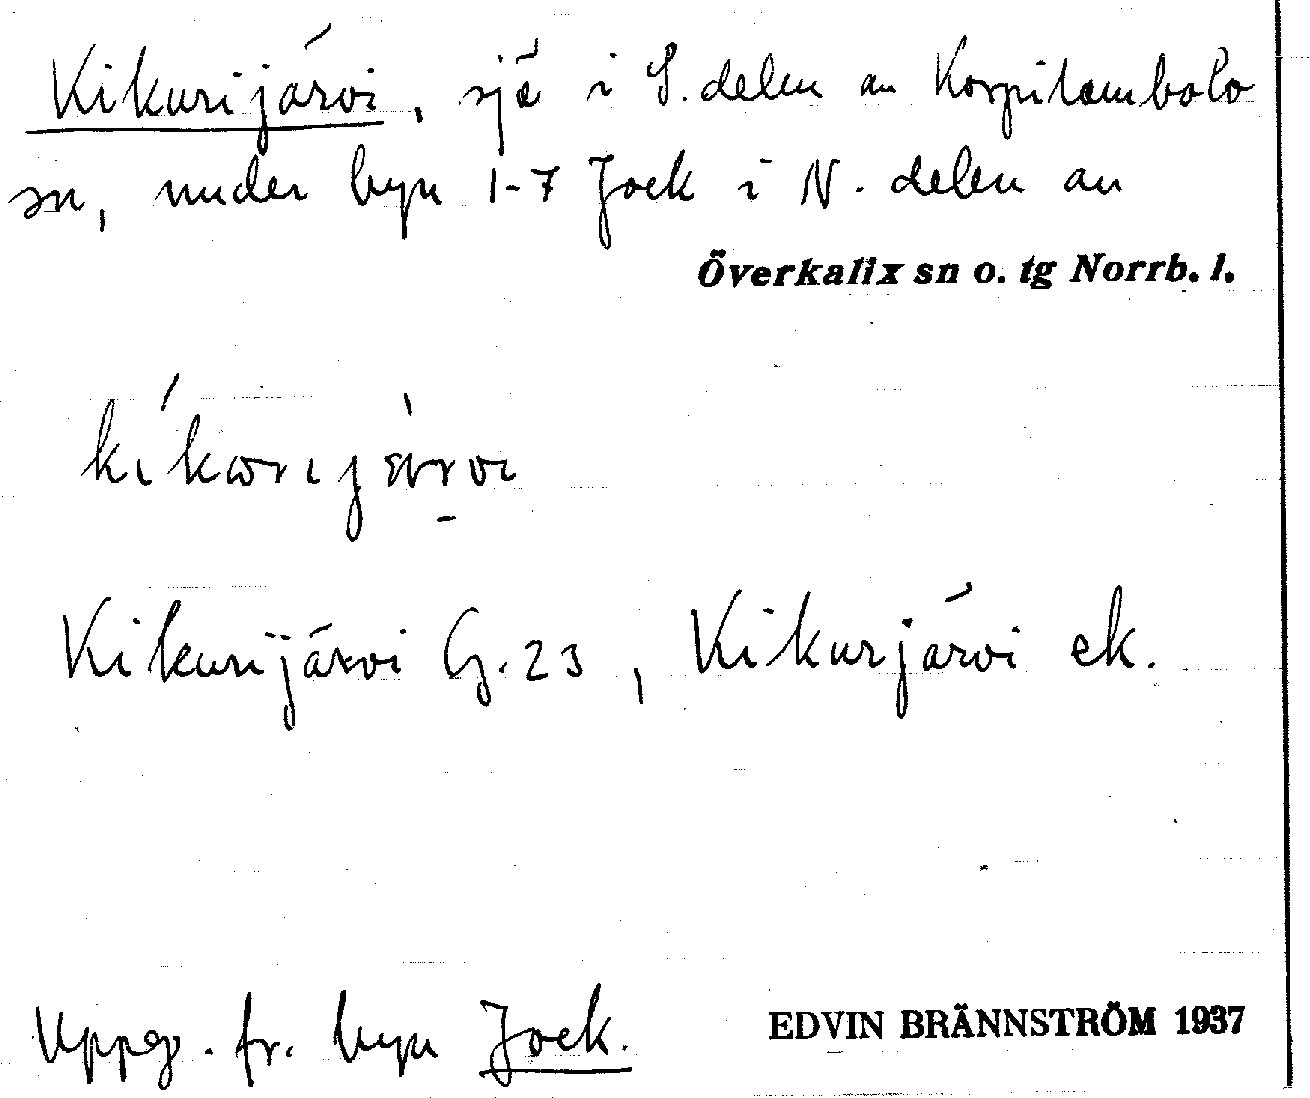 Kikurijärvi, sjö i S. delen av Korpilombolo
sn, under byn 1-7 Jock i N. delen av
Överkalix sn o. tg Norrb. l.
Kikurijärvi G. 23, Kikurjärvi ek.
Uppg. fr. byn Jock.
EDVIN BRÄNNSTRÖM 1937